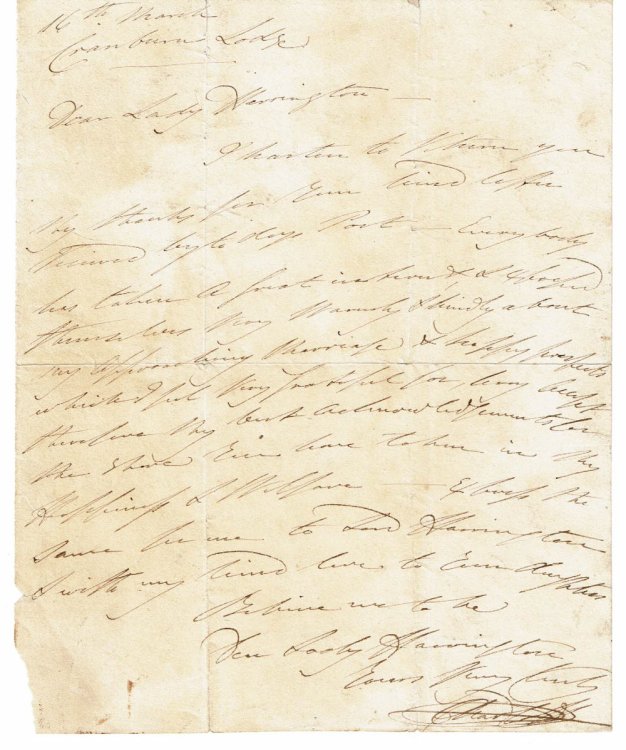 16th March
Cranburn Lodge
Dear Lady Harrington —
I hasten to return you
My thanks for Your kind letter
received by to days Post — Everybody
has taken a great interest & expressed
themselves very warmly & kindly about
my approaching Marriage & happy prospects
which I feel very grateful for, pray accept
therefore My best acknowledgements for
the share You have taken in My
Happiness & Welfare — Express the
same for me to Lord Harrington
& with my kind love to Your daughters
Believe me to be
Dear Lady Harrington
Yours Very